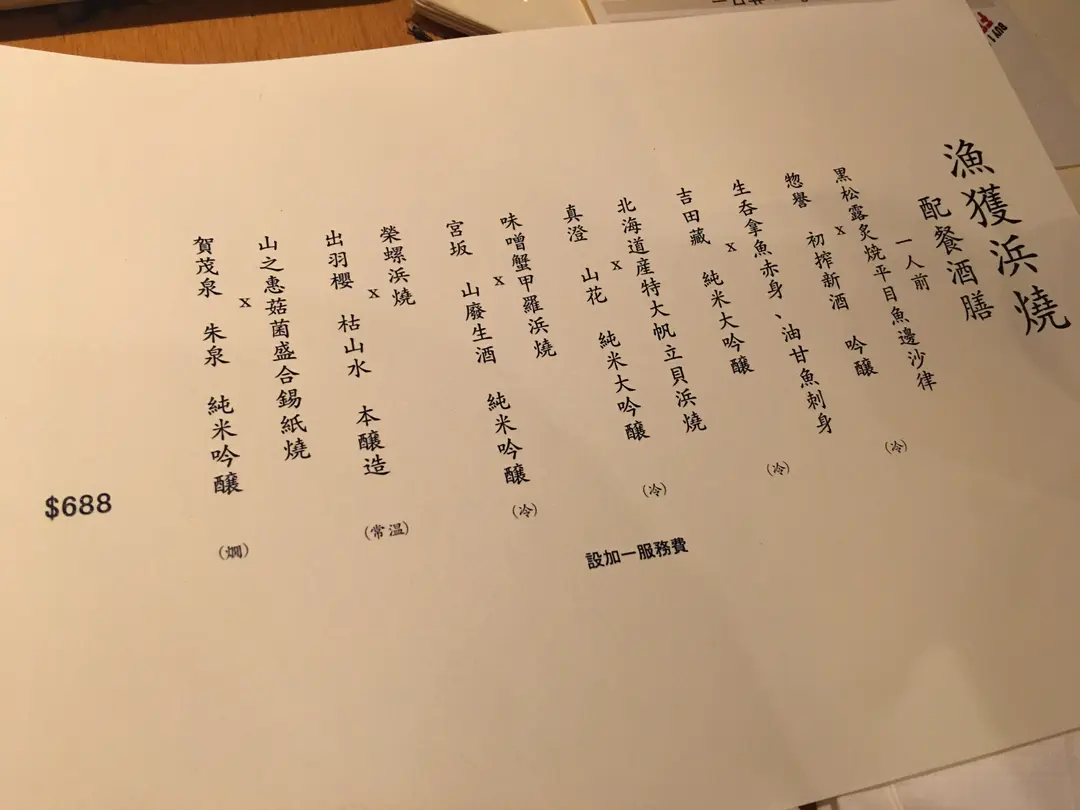 漁獲浜燒
配餐酒膳
一人前
黑松露炙燒平目魚邊沙律
x
惣譽 初搾新酒 吟釀 (冷)
生吞拿魚赤身、油甘魚刺身
x
吉田藏 純米大吟釀 (冷)
北海道産特大帆立貝浜燒
x
真澄 山花 純米大吟釀 (冷)
味噌蟹甲羅浜燒
x
宮坂 山廢生酒 純米吟釀 (冷)
榮螺浜燒
x
出羽櫻 枯山水 本釀造 (常温)
山之惠菇菌盛合錫紙燒
x
賀茂泉 朱泉 純米吟釀 (燗)
$688
設加一服務費